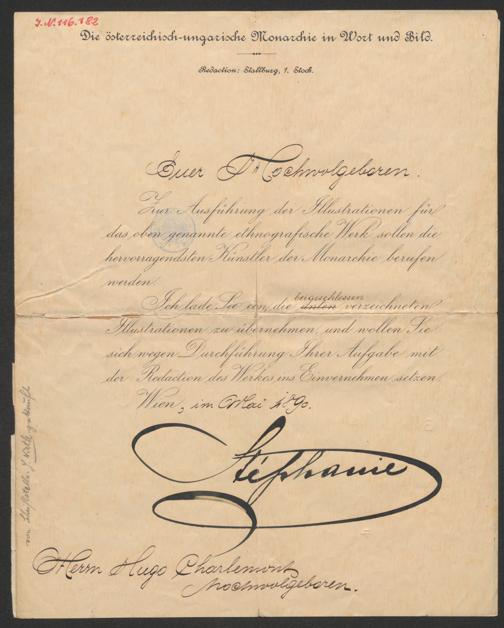 J.N. 116.782
Die österreichisch-ungarische Monarchie in Wort und Bild.
Redaction: Stallburg, 1. Stock.
Euer Hochwolgeboren.
Zur Ausführung der Illustrationen für
das oben genannte ethnografische Werk sollen die
hervorragendsten Künstler der Monarchie berufen
werden.
beigeschlossen
Ich lade Sie ein, die unten verzeichneten
Illustrationen zu übernehmen, und wollen Sie
sich wegen Durchführung Ihrer Aufgabe mit
der Redaction des Werkes ins Einvernehmen setzen.
Wien, im Mai 1890.
Stéphanie
Herrn Hugo Charlemont
Hochwolgeboren.